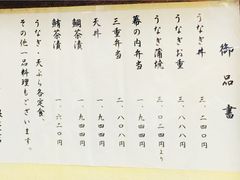 御品書
うなぎ丼 三、二四〇円
うなぎお重 三、八八八円
うなぎ蒲焼 三、〇二四円
幕の内弁当 一、九四四円
三重弁当 二、一〇八円
天丼 一、九四四円
鯛茶漬 一、九四四円
鮪茶漬 一、六二〇円
うなぎ・天ぷら各定食、
その他一品料理もございます。